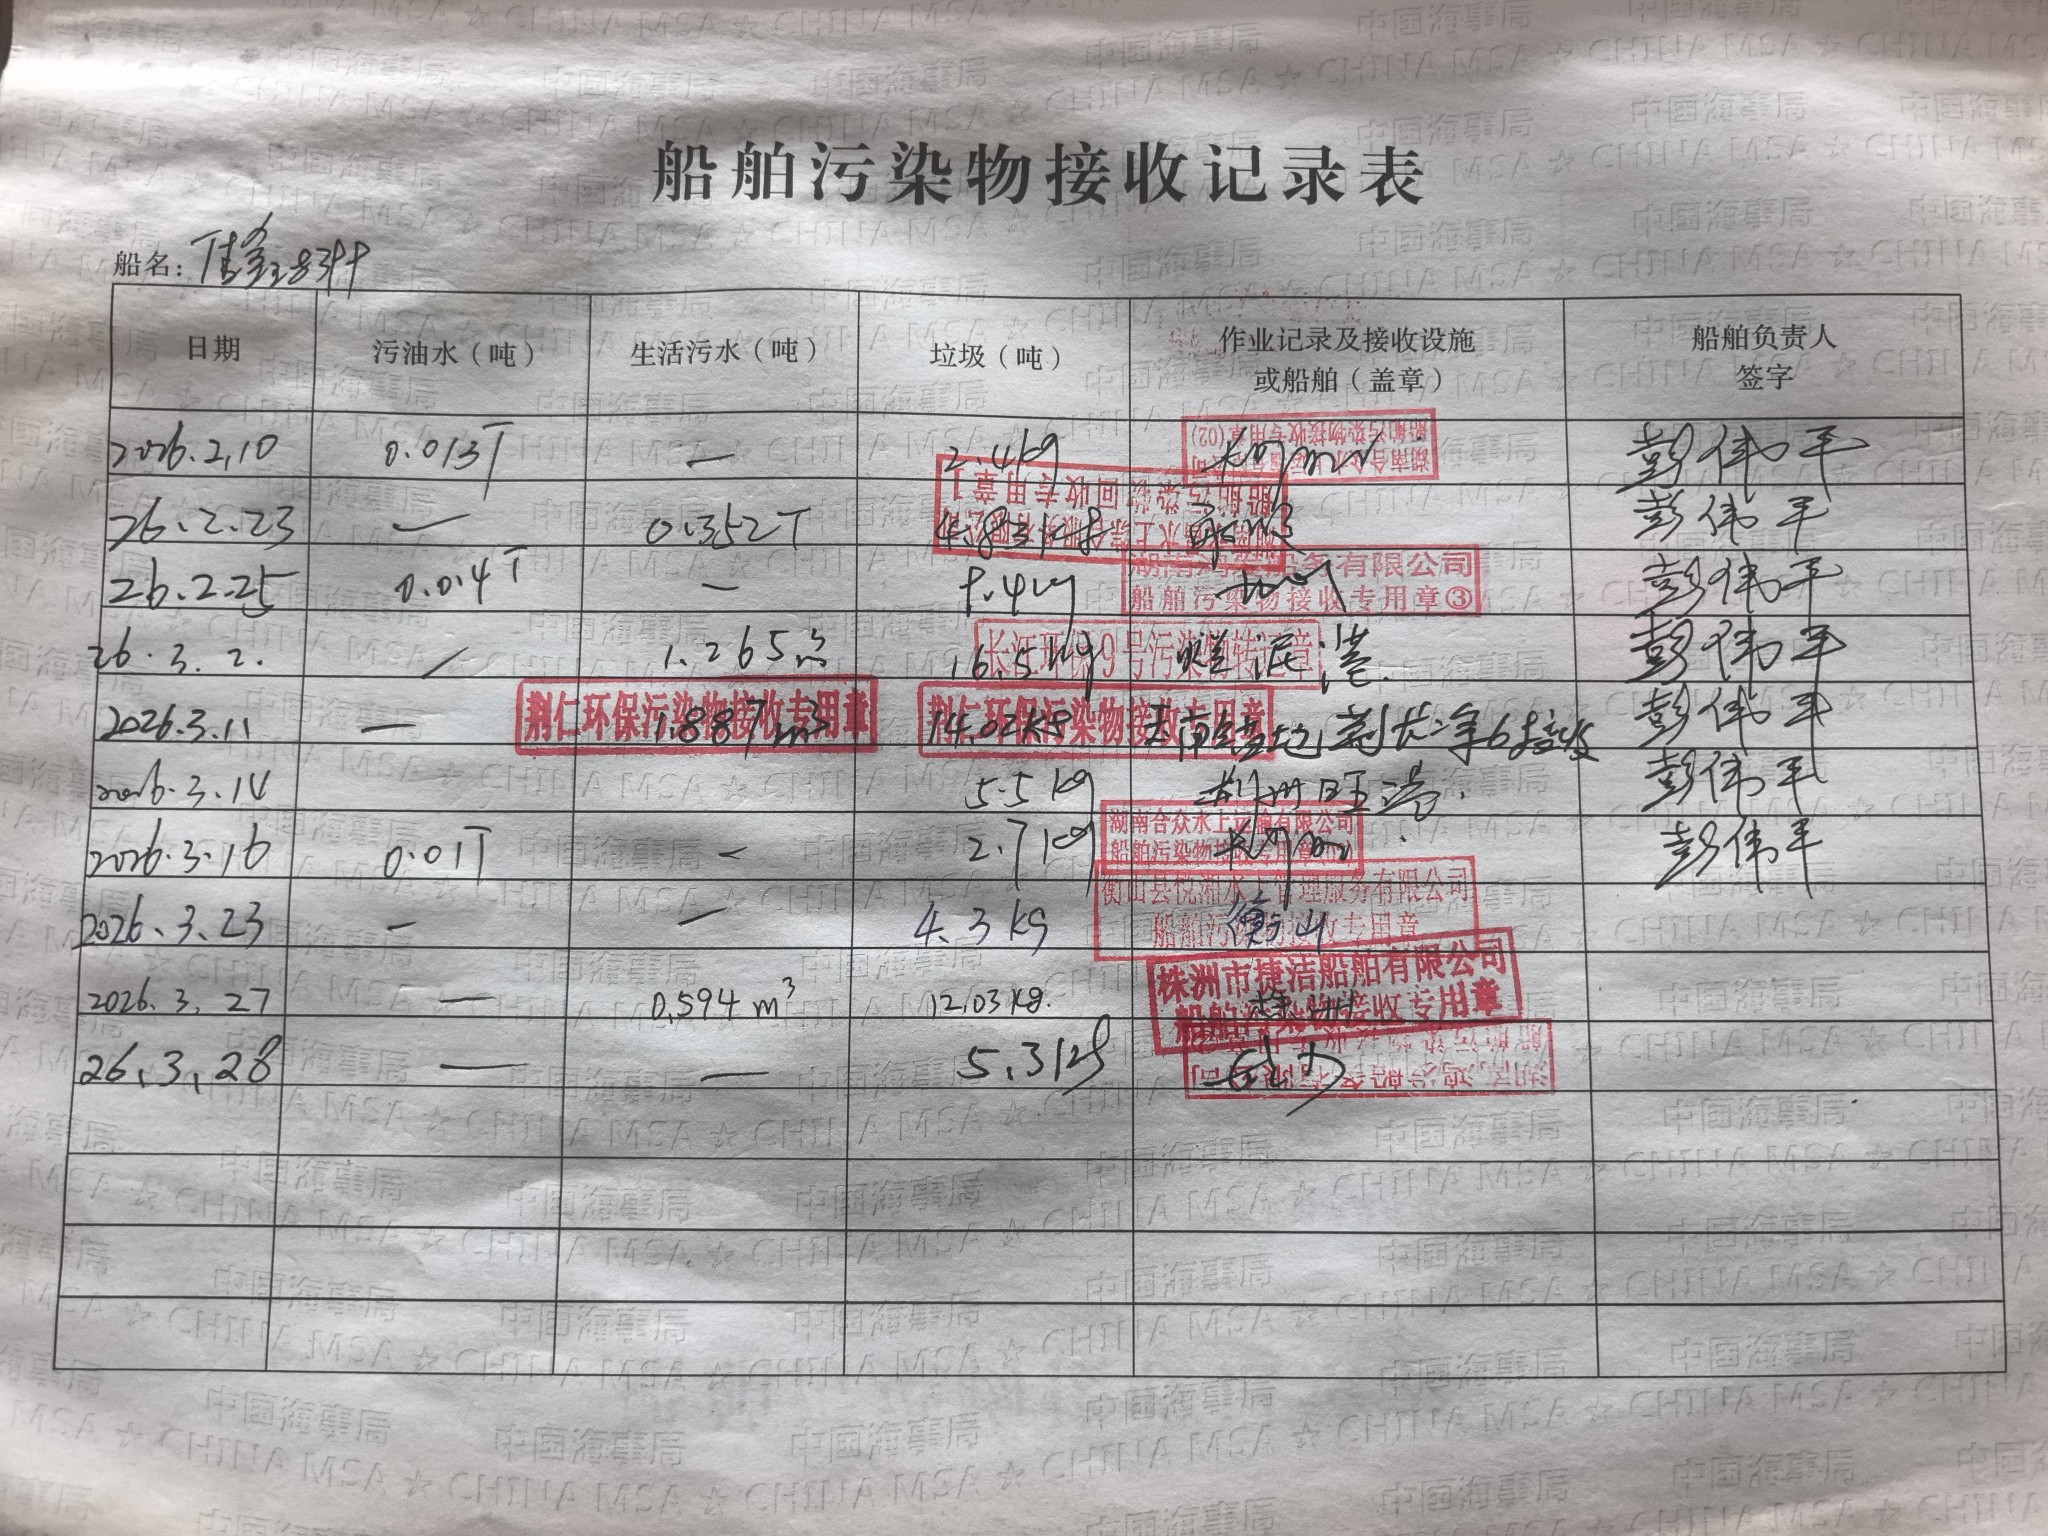 船舶污染物接收记录表
船名：
日期 污油水（吨） 生活污水（吨） 垃圾（吨） 作业记录及接收设施或船舶（盖章） 船舶负责人签字
2026.2.10 0.013T — 2.4kg 彭伟平
湖南合众水上运输有限公司
船舶污染物接收专用章(02)
26.2.23 — 0.352T 彭伟平
船舶污染物回收专用章1
26.2.25 0.04T — 彭伟平
务有限公司
船舶污染物接收专用章③
26.3.2. / 1.265m³ 16.5kg 彭伟平
长江环保9号污染物转运章
2026.3.11 — 1.887m³ 14.02KG 彭伟平
荆仁环保污染物接收专用章
荆仁环保污染物接收专用章
2026.3.14 5.5kg 彭伟平
2026.3.16 0.01T — 2.7kg 彭伟平
湖南合众水上运输有限公司
船舶污染物接收专用章
2026.3.23 — — 4.3kg 衡山
衡山县悦湘水上管理服务有限公司
船舶污染物接收专用章
2026.3.27 — 0.594m³ 12.03kg. 株洲
株洲市捷洁船舶有限公司
船舶污染物接收专用章
26.3.28 — — 5.3kg
中国海事局
CHINA MSA